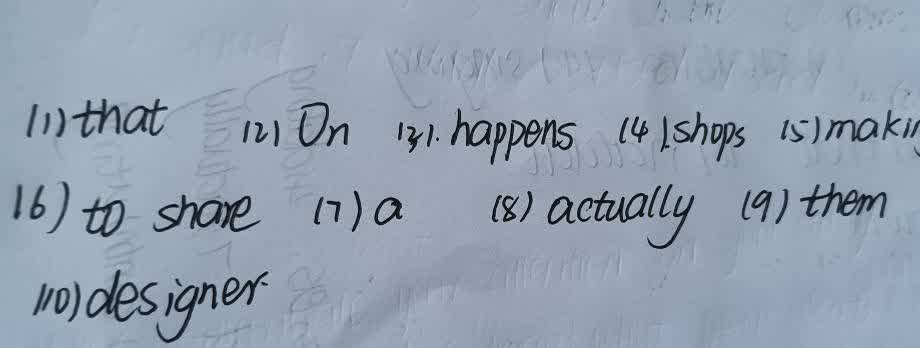 (1) that (2) On (3). happens (4). shops (5) makin
(6) to share (7) a (8) actually (9) them
(10) designer